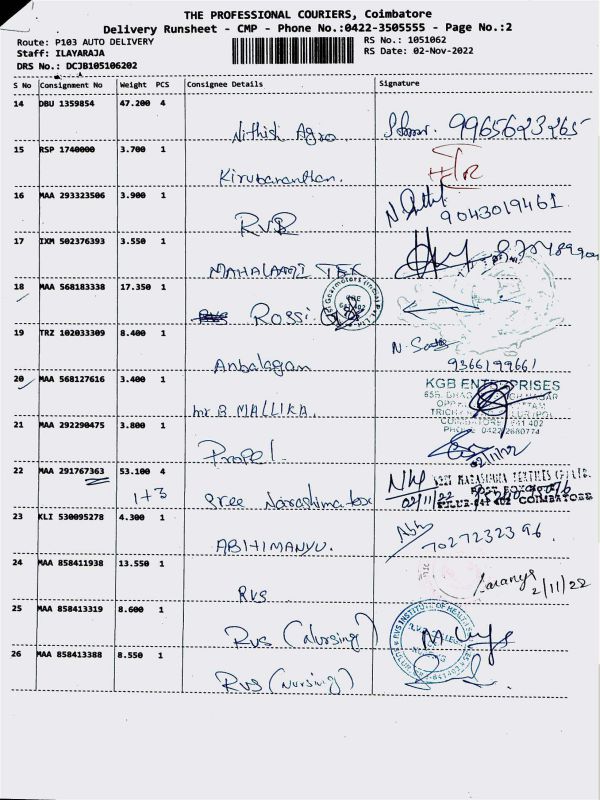 THE PROFESSIONAL COURIERS, Coimbatore
Delivery Runsheet - CMP - Phone No.:0422-3505555 - Page No.:2
Route: P103 AUTO DELIVERY
RS No.: 1051062
Staff: ILAYARAJA
RS Date: 02-Nov-2022
DRS No.: DCJB105106202
S No Consignment No Weight PCS Consignee Details Signature
14 DBU 1359854 47.200 4
Nithish Agro 9965623265
15 RSP 1740000 3.700 1
Kirubaranthan.
16 MAA 293323506 3.900 1
RVS N. 9043019461
17 IXM 502376393 3.550 1
MAHALAXMI TEX
18 MAA 568183338 17.350 1
ROSSI
19 TRZ 102033309 8.400 1
Anbalagan N. 9366199661
20 MAA 568127616 3.400 1
Mr B MALLIKA.
KGB ENTERPRISES
COIMBATORE 641 402
PHONE 0422 2680774
21 MAA 292290475 3.800 1
Propel 02/11/22
22 MAA 291767363 53.100 4
1+3 Sree Narashima tex 02/11/22
SREE NARASIMHA TEXTILES (P) LTD.
SULUR-641 402 COIMBATORE
23 KLI 530095278 4.300 1
ABHIMANYU. 7027232396
24 MAA 858411938 13.550 1
RVS Saranya 2/11/22
25 MAA 858413319 8.600 1
RVS (Nursing)
RVS INSTITUTE OF HEALTH
26 MAA 858413388 8.550 1
RVS (Nursing)